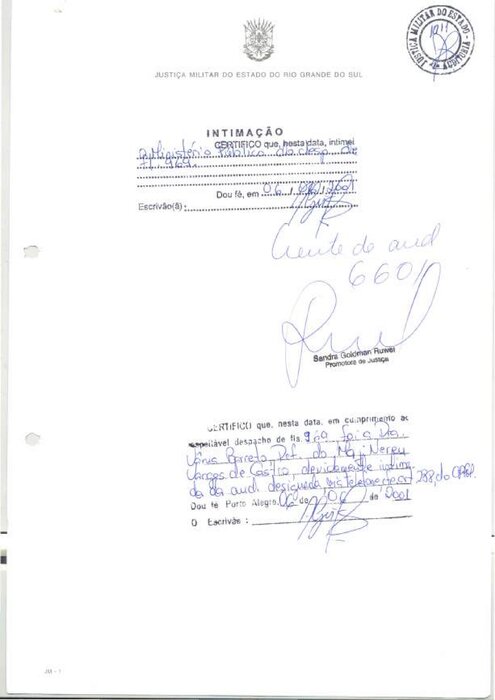 JUSTIÇA MILITAR DO ESTADO - 1ª AUDITORIA
JUSTIÇA MILITAR DO ESTADO DO RIO GRANDE DO SUL
INTIMAÇÃO
CERTIFICO que, nesta data, intimei
o Ministério Público do desp. de
fl. 969.
Dou fé, em 06 / 06 / 2001
Escrivão(ã):
Ciente do aud
6601
Sandra Goldman Ruwel
Promotora de Justiça
CERTIFICO que, nesta data, em cumprimento ao
respeitável despacho de fls. 969 foi a Dra.
Vânia Barreto, Def. do Maj. Nereu
Vargas de Castro, devidamente intima
da da aud. designada, via telefone art 288, do CPPM.
Dou fé Porto Alegre, 06 de 06 de 2001
O Escrivão:
JM - 1